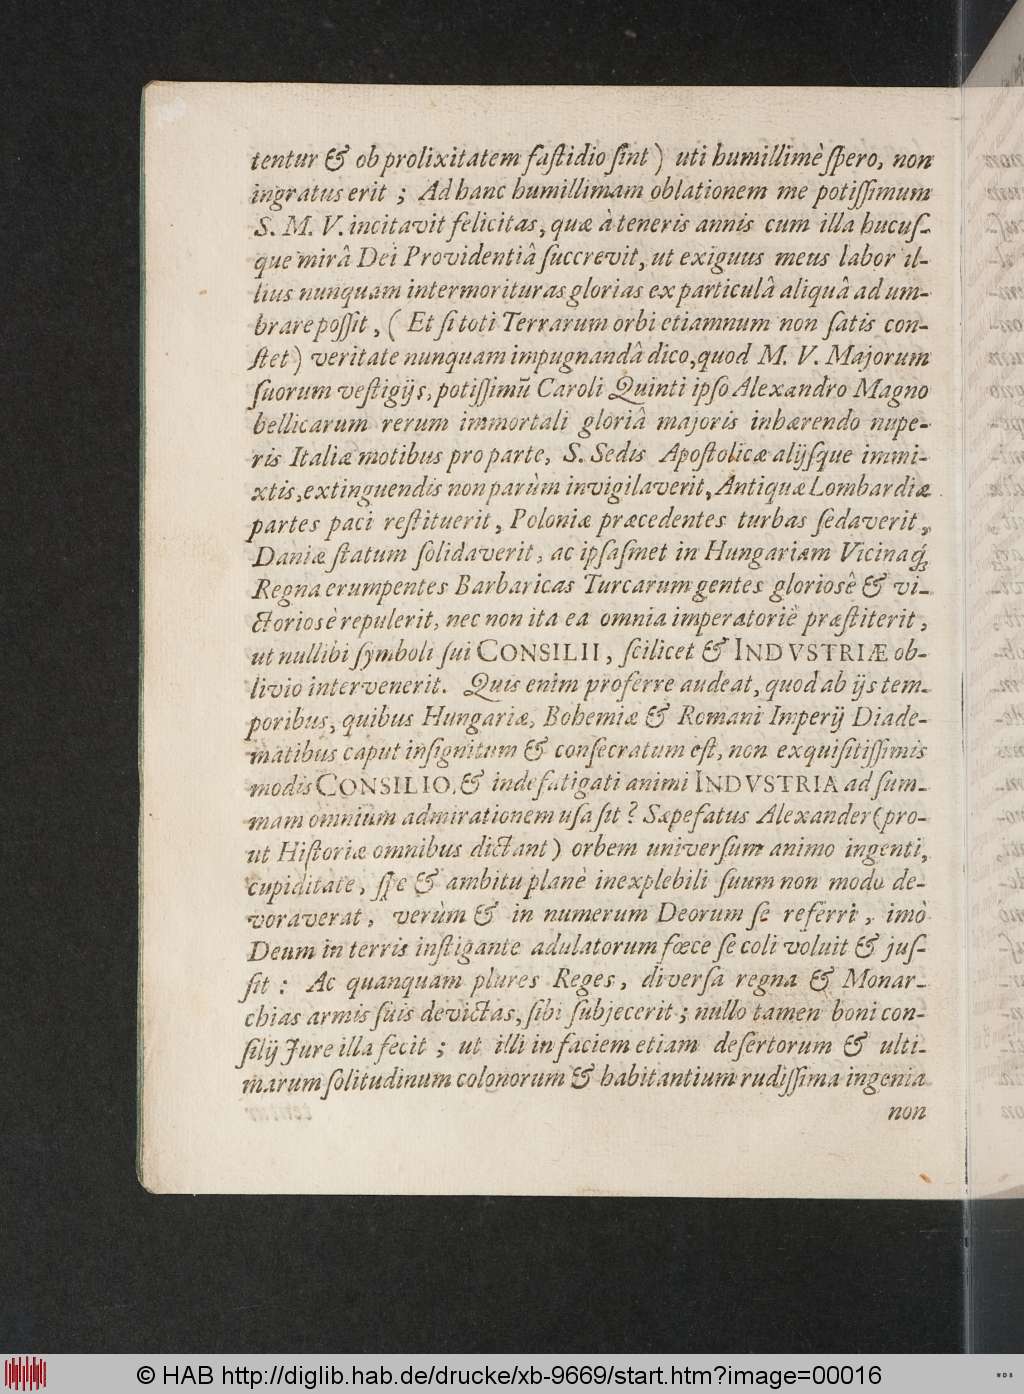 tentur & ob prolixitatem faſtidio ſint) uti humillimè ſpero, non
ingratus erit ; Ad hanc humillimam oblationem me potiſſimum
S. M. V. incitavit felicitas, quæ à teneris annis cum illa hucuſ-
que mirâ Dei Providentiâ ſuccrevit, ut exiguus meus labor il-
lius nunquam intermorituras glorias ex particulâ aliquâ ad um-
brare poſſit, ( Et ſi toti Terrarum orbi etiamnum non ſatis con-
ſtet) veritate nunquam impugnandâ dico, quod M. V. Majorum
ſuorum veſtigijs, potiſſimū Caroli Quinti ipſo Alexandro Magno
bellicarum rerum immortali gloriâ majoris inhærendo nupe-
ris Italiæ motibus pro parte, S. Sedis Apoſtolicæ alijſque immi-
xtis, extinguendis non parùm invigilaverit, Antiquæ Lombardiæ
partes paci reſtituerit, Poloniæ præcedentes turbas ſedaverit,
Daniæ ſtatum ſolidaverit, ac ipſaſmet in Hungariam Vicinaq́;
Regna erumpentes Barbaricas Turcarum gentes glorioſê & vi-
ctorioſè repulerit, nec non ita ea omnia imperatoriè præſtiterit,
ut nullibi ſymboli ſui CONSILII, ſcilicet & INDVSTRIÆ ob-
livio intervenerit. Quis enim proferre audeat, quod ab ijs tem-
poribus, quibus Hungariæ, Bohemiæ & Romani Imperij Diade-
matibus caput inſignitum & conſecratum eſt, non exquiſitiſſimis
modis CONSILIO, & indefatigati animi INDVSTRIA ad ſum-
mam omnium admirationem uſa ſit? Sæpefatus Alexander (pro-
ut Hiſtoriæ omnibus dictant) orbem univerſum animo ingenti,
cupiditate, ſpe & ambitu planè inexplebili ſuum non modo de-
voraverat, verùm & in numerum Deorum ſe referri, imò
Deum in terris inſtigante adulatorum fœce ſe coli voluit & juſ-
ſit : Ac quanquam plures Reges, diverſa regna & Monar-
chias armis ſuis devictas, ſibi ſubjecerit; nullo tamen boni con-
ſilij Jure illa fecit ; ut illi in faciem etiam deſertorum & ulti-
marum ſolitudinum colonorum & habitantium rudiſſima ingenia
non
© HAB http://diglib.hab.de/drucke/xb-9669/start.htm?image=00016